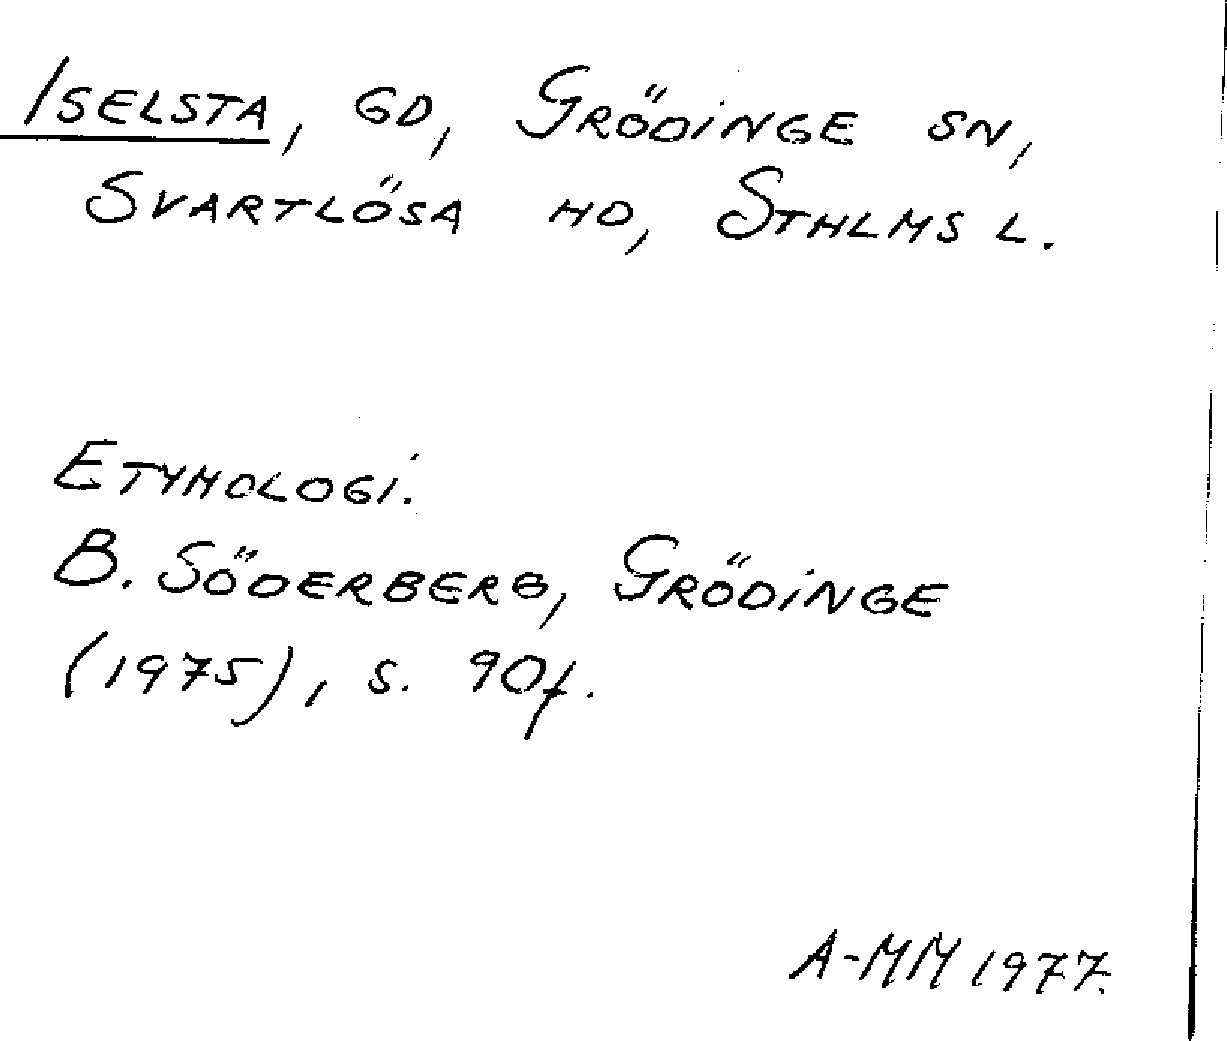 Iselsta, gd, Grödinge sn,
Svartlösa hd, Sthlms l.
Etymologi.
B. Söderberg, Grödinge
(1975), s. 90f.
A-MM 1977.